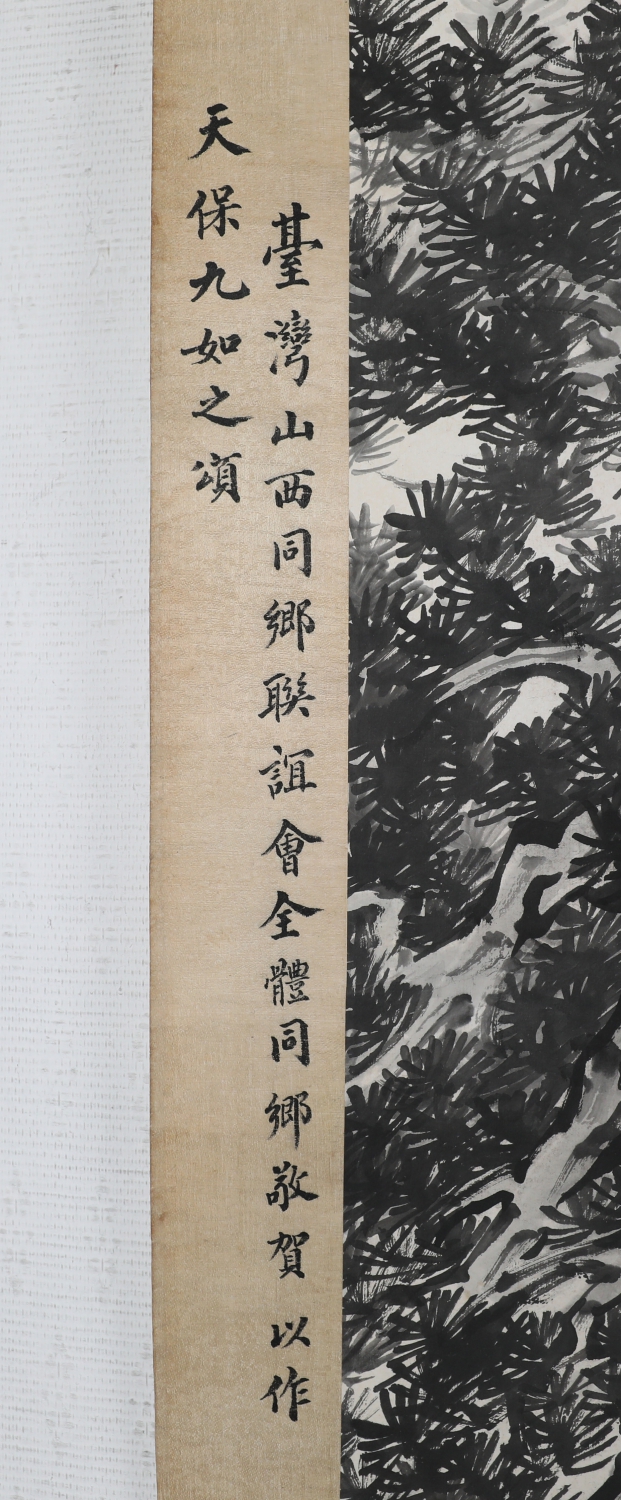 臺灣山西同鄉聯誼會全體同鄉敬賀以作
天保九如之頌